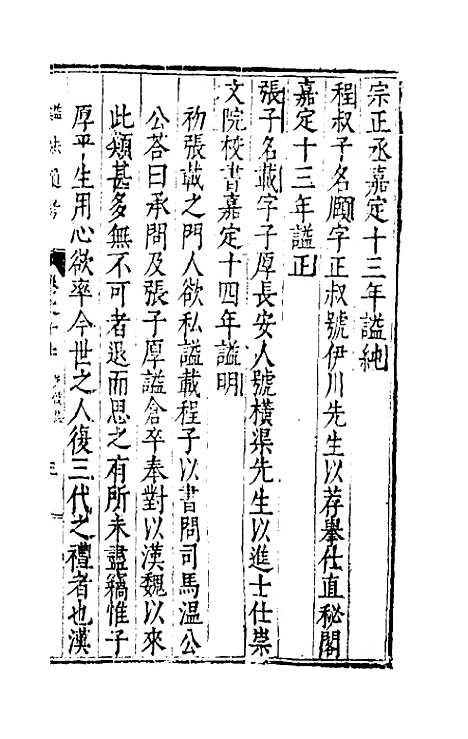 宗正丞嘉定十三年謚純
程叔子名頤字正叔號伊川先生以荐舉仕直秘閣
嘉定十三年謚正
張子名載字子厚長安人號橫渠先生以進士仕崇
文院校書嘉定十四年謚明
初張載之門人欲私謚載程子以書問司馬温公
公荅曰承問及張子厚謚倉卒奉對以漢魏以來
此類甚多無不可者退而思之有所未盡竊惟子
厚平生用心欲率今世之人復三代之禮者也漢
謚法通考